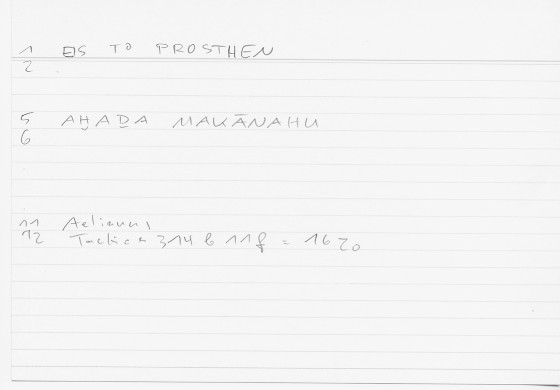 1 EIS TO PROSTHEN
2
5 AḪAḎA MAKĀNAHU
6
11 Aelianus,
12 Tactica 314 b 11 f = 16 Zo